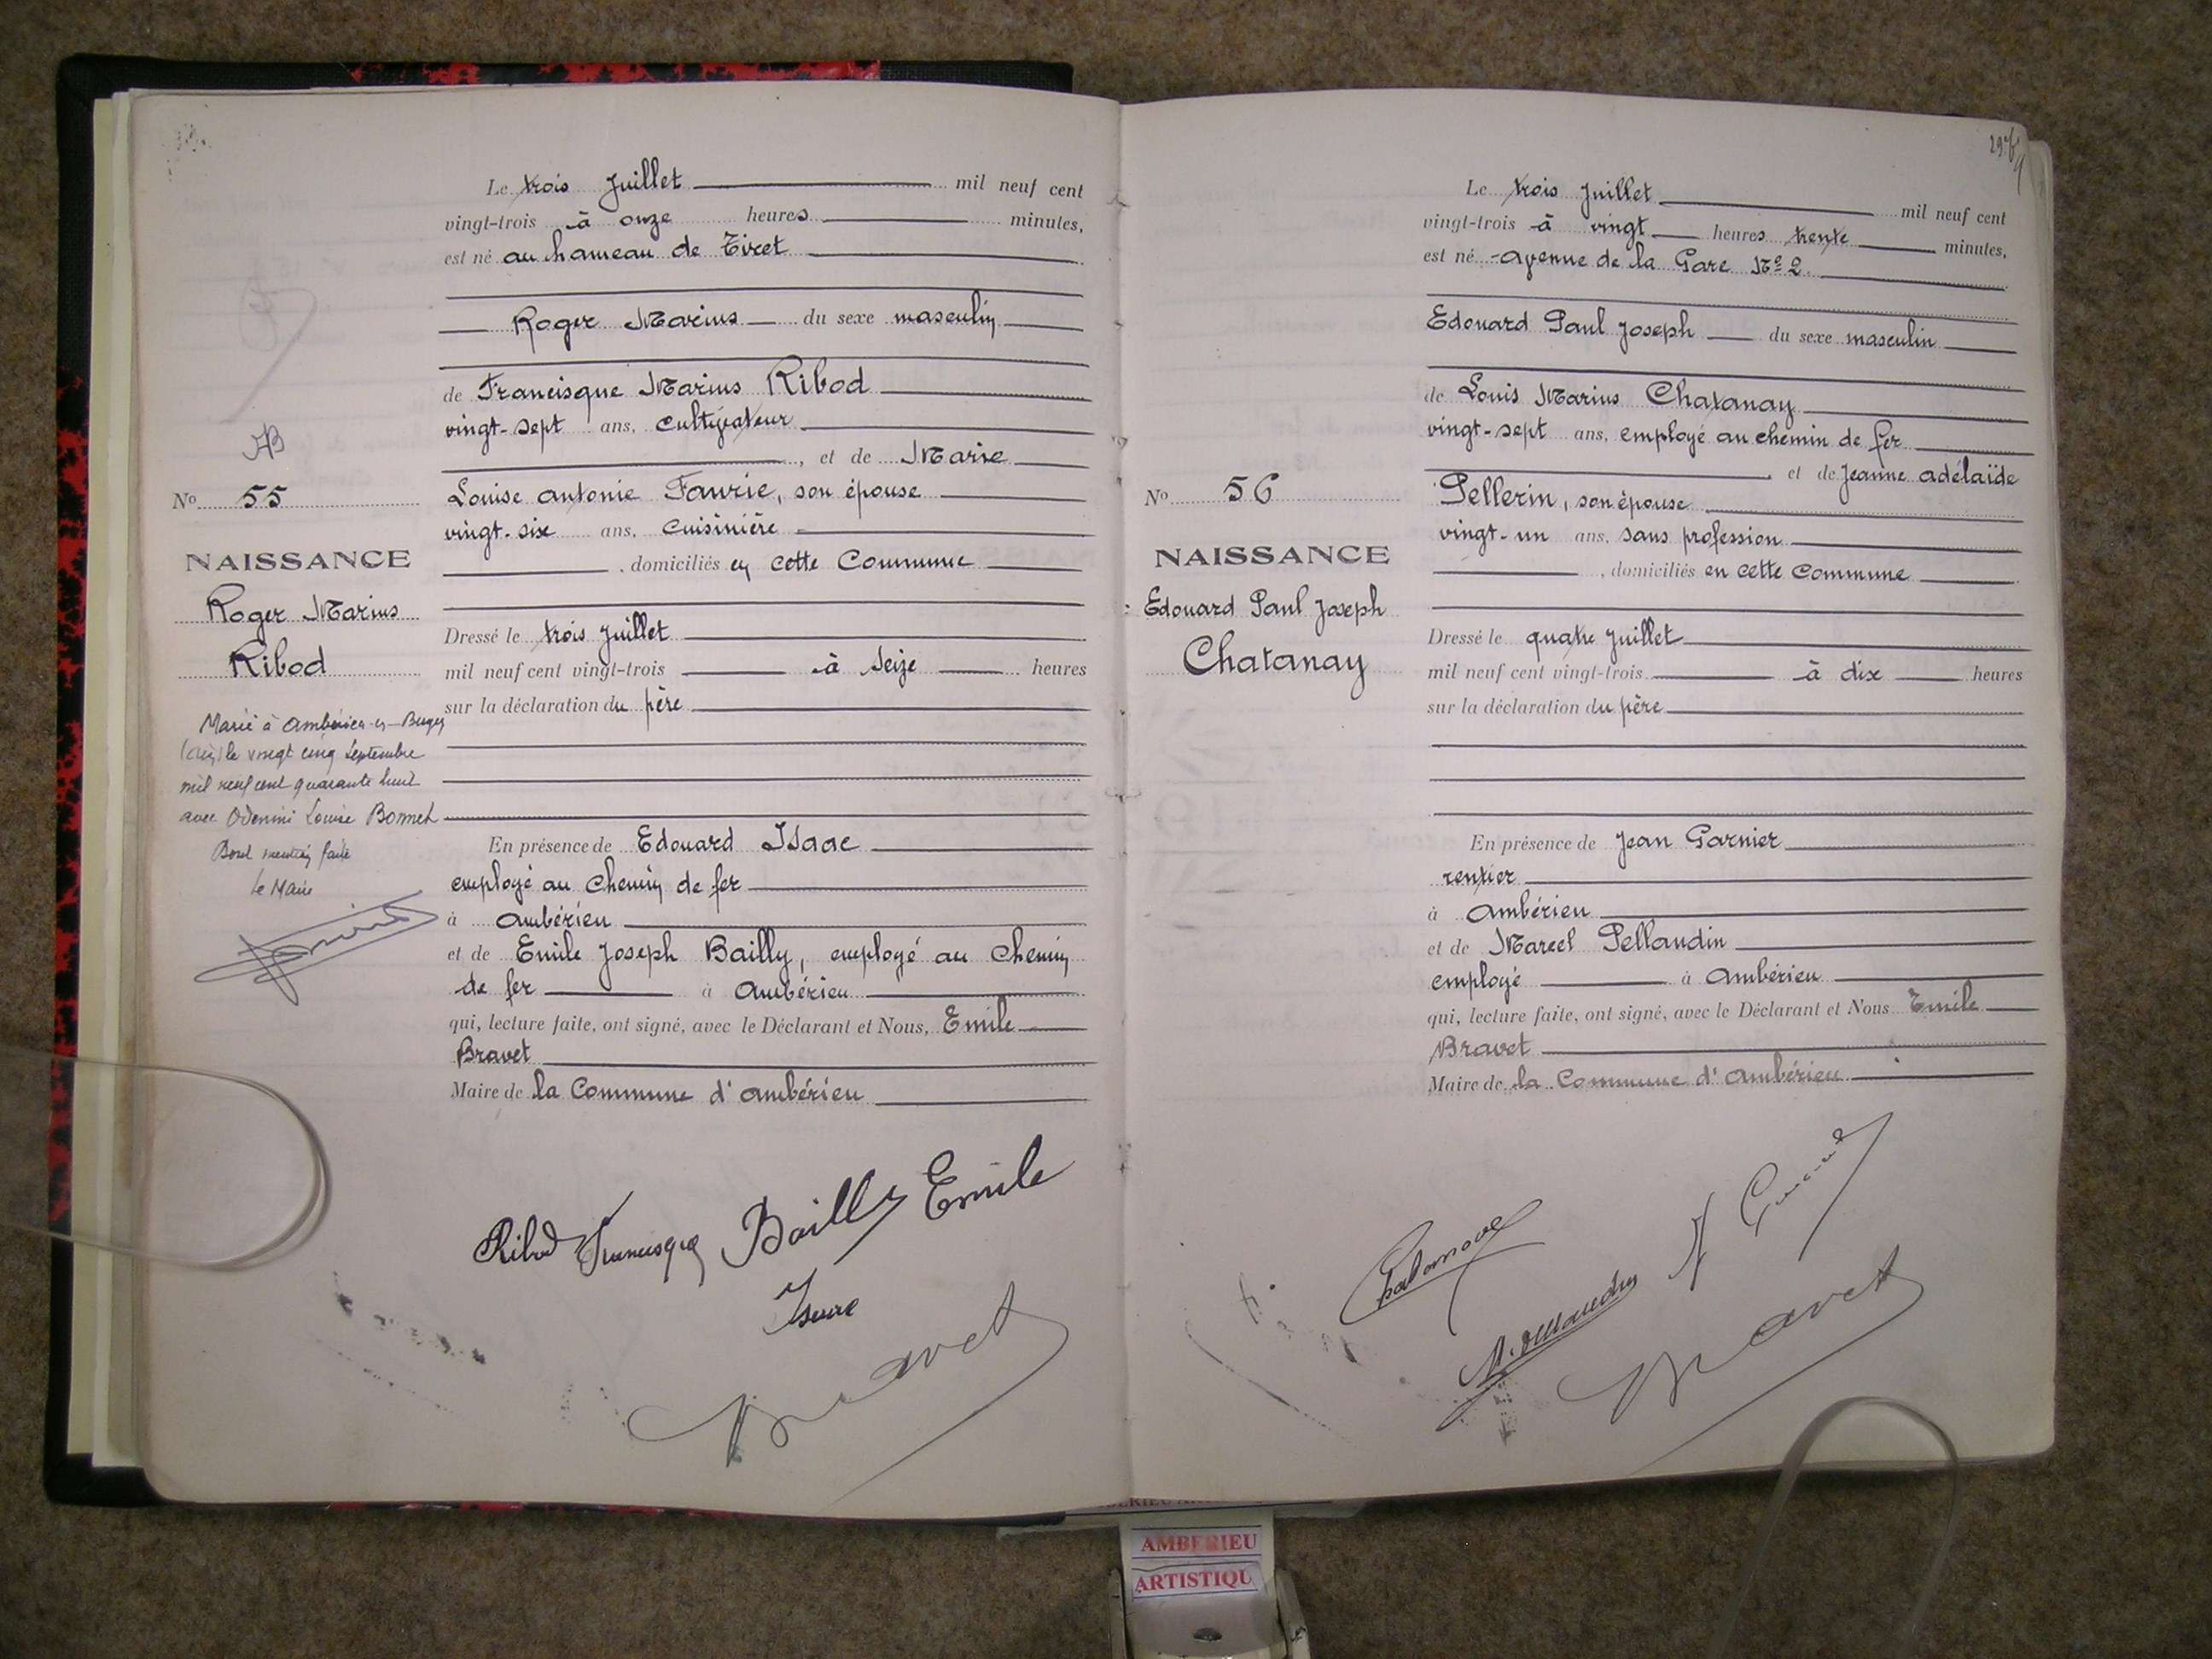 Le trois Juillet mil neuf cent
vingt-trois à onze heures minutes,
est né au hameau de Tiret
Roger Marius du sexe masculin
de Francisque Marius Ribod
vingt-sept ans, cultivateur
, et de Marie
Louise Antonie Faurie, son épouse
vingt-six ans, cuisinière
, domiciliés en cette Commune
Dressé le trois Juillet
mil neuf cent vingt-trois à seize heures
sur la déclaration du père
En présence de Edouard Isaac
employé au Chemin de fer
à Ambérieu
et de Emile Joseph Bailly, employé au Chemin
de fer à Ambérieu
qui, lecture faite, ont signé, avec le Déclarant et Nous, Emile
Bravet
Maire de la Commune d'Ambérieu
Ribod Francisque Bailly Emile
Isaac
Bravet
AB
No 55
NAISSANCE
Roger Marius
Ribod
Marié à Ambérieu-en-Bugey
(Ain) le vingt cinq Septembre
mil neuf cent quarante huit
avec Louise Bonnet
Dont mention faite
le Maire
Le trois Juillet mil neuf cent
vingt-trois à vingt heures trente minutes,
est né avenue de la Gare No 2.
Edouard Paul Joseph du sexe masculin
de Louis Marius Chatanay
vingt-sept ans, employé au chemin de fer
et de Jeanne Adélaïde
Pellerin, son épouse
vingt-un ans, sans profession
, domiciliés en cette Commune
Dressé le quatre Juillet
mil neuf cent vingt-trois à dix heures
sur la déclaration du père
En présence de Jean Garnier
rentier
à Ambérieu
et de Marcel Pellaudin
employé à Ambérieu
qui, lecture faite, ont signé, avec le Déclarant et Nous Emile
Bravet
Maire de la Commune d'Ambérieu
Chatanay
Bravet
No 56
NAISSANCE
Edouard Paul Joseph
Chatanay
AMBERIEU
ARTISTIQU